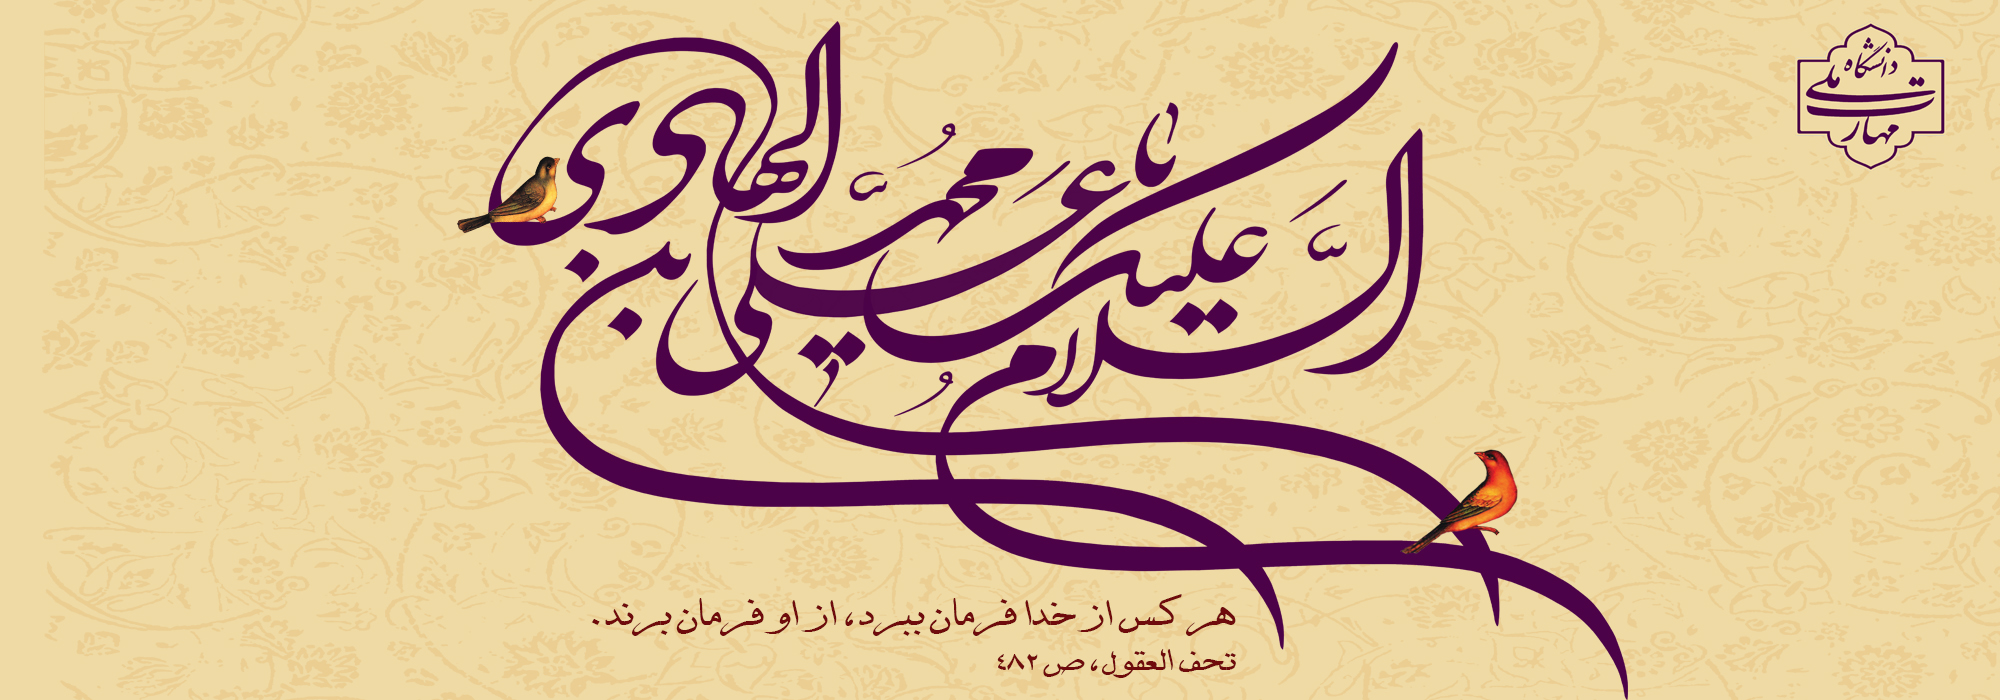 دانشگاه ملی مهارت
السلام علیک یا علی بن محمد الهادی
هر کس از خدا فرمان ببرد، از او فرمان برند.
تحف العقول، ص ۴۸۲